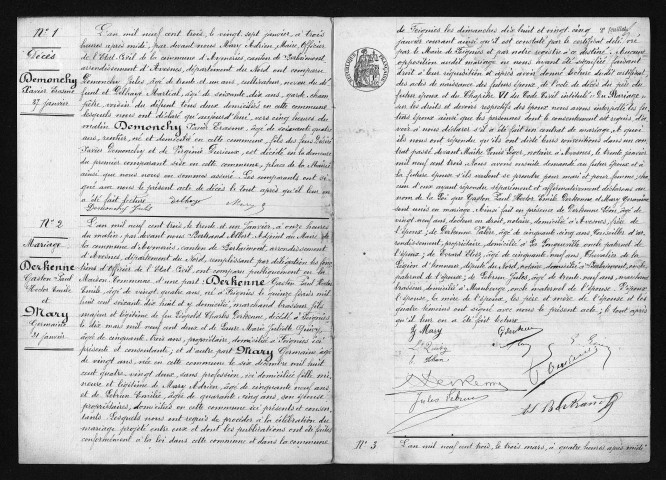 N° 1
Décès
Demonchy
Xavier
27 janvier
L'an mil neuf cent trois, le vingt sept janvier, à trois
heures après midi, par devant nous Mary Adrien, Maire, Officier
de l'Etat Civil de la commune d'Aymeries, canton de Berlaimont,
arrondissement d'Avesnes, département du Nord, ont comparu
Demonchy Jules, âgé de trente et un ans, cultivateur, neveu du dé-
funt et Martial, âgé de soixante dix ans, garde-cham-
pêtre, voisin du défunt tous deux domiciliés en cette commune
lesquels nous ont déclaré qu'aujourd'hui, vers cinq heures du
matin, Demonchy Xavier, âgé de soixante quatre
ans, rentier, né et domicilié en cette commune, fils des feus
Xavier Demonchy et de Virginie est décédé en la demeure
du premier comparant sise en cette commune, place de la Mairie
ainsi que nous nous en sommes assuré. Les comparants ont si-
gné avec nous le présent acte de décès le tout après qu'il leur en
a été fait lecture.
Demonchy Jules Mary
N° 2
Mariage
Derkenne
Gaston Paul
Hector Emile
et
Mary
Germaine
31 janvier
L'an mil neuf cent trois, le trente et un janvier, à onze heures
du matin, par devant nous Bertrand Albert, Adjoint au Maire de
la commune d'Aymeries, canton de Berlaimont, arrondissement
d'Avesnes, département du Nord, remplissant par délégation les fonc-
tions d'Officier de l'Etat Civil ont comparu publiquement en la
Maison Commune d'une part: Derkenne Gaston Paul Hector
Emile, âgé de vingt quatre ans, né à Feignies le quinze
mil huit cent soixante dix huit et y domicilié, marchand brasseur, fils
majeur et légitime de feu Léopold Charles Derkenne, décédé à Feignies
le dix mai mil neuf cent deux et de Laure Marie Juliette
âgée de cinquante trois ans, propriétaire, domiciliée à Feignies ici
présente et consentante; et d'autre part Mary Germaine, âgée
de vingt ans, née en cette commune le six décembre mil huit
cent quatre vingt deux, sans profession, ici domiciliée fille mi-
neure et légitime de Mary Adrien, âgé de cinquante neuf ans
et de Lebrun Emilie, âgée de quarante cinq ans, son épouse,
propriétaires, domiciliés en cette commune ici présents et consen-
tants. Lesquels nous ont requis de procéder à la célébration du
mariage projeté entre eux et dont les publications ont été faites
conformément à la loi dans cette commune et dans la commune
de Feignies les dimanches dix huit et vingt cinq
janvier courant ainsi qu'il est constaté par le certificat déli-vré
par le Maire de Feignies et par notre registre à ce destiné. Aucune
opposition audit mariage ne nous ayant été signifiée faisant
droit à leur réquisition et après avoir donné lecture dudit certificat
des actes de naissance des futurs époux, de l'acte de décès du père du
futur époux et du Chapitre VI du Code Civil intitulé "Du Mariage"
sur les droits et devoirs respectifs des époux nous avons interpellé les fu-
turs époux ainsi que les personnes dont le consentement est requis, d'a-
voir à nous déclarer s'il a été fait un contrat de mariage. A quoi
ils nous ont répondu qu'ils ont dicté leurs conventions dans un con-
trat passé devant Maître notaire à Avesnes, le trente janvier
mil neuf cent trois. Nous avons ensuite demandé au futur époux et à
la future épouse s'ils veulent se prendre pour mari et pour femme; cha-
cun d'eux ayant répondu séparément et affirmativement déclarons au
nom de la Loi que Gaston Paul Hector Emile Derkenne et Mary Germaine
sont unis en mariage. Ainsi fait en présence de Derkenne âgé de
vingt neuf ans, docteur en droit, notaire, domicilié à Avesnes, frère de
l'époux; de Derkenne âgé de cinquante cinq ans, Conseiller d'ar-
rondissement, propriétaire, domicilié à La Longueville oncle paternel de
l'époux; de Evrard âgé de cinquante neuf ans, Chevalier de la
Légion d'Honneur, député du Nord, notaire, domicilié à Berlaimont, oncle
paternel de l'épouse; de Lebrun Jules, âgé de trente neuf ans, marchand
brasseur, domicilié à Maubeuge, oncle maternel de l'épouse. L'époux
l'épouse, la mère de l'époux, les père et mère de l'épouse et les
quatre témoins ont signé avec nous le présent acte; le tout après
qu'il leur en a été fait lecture.
G Mary G Derkenne
E. Lebrun
Derkenne
Jules Lebrun Al. Bertrand
N° 3 L'an mil neuf cent trois, le trois mars, à quatre heures après-midi